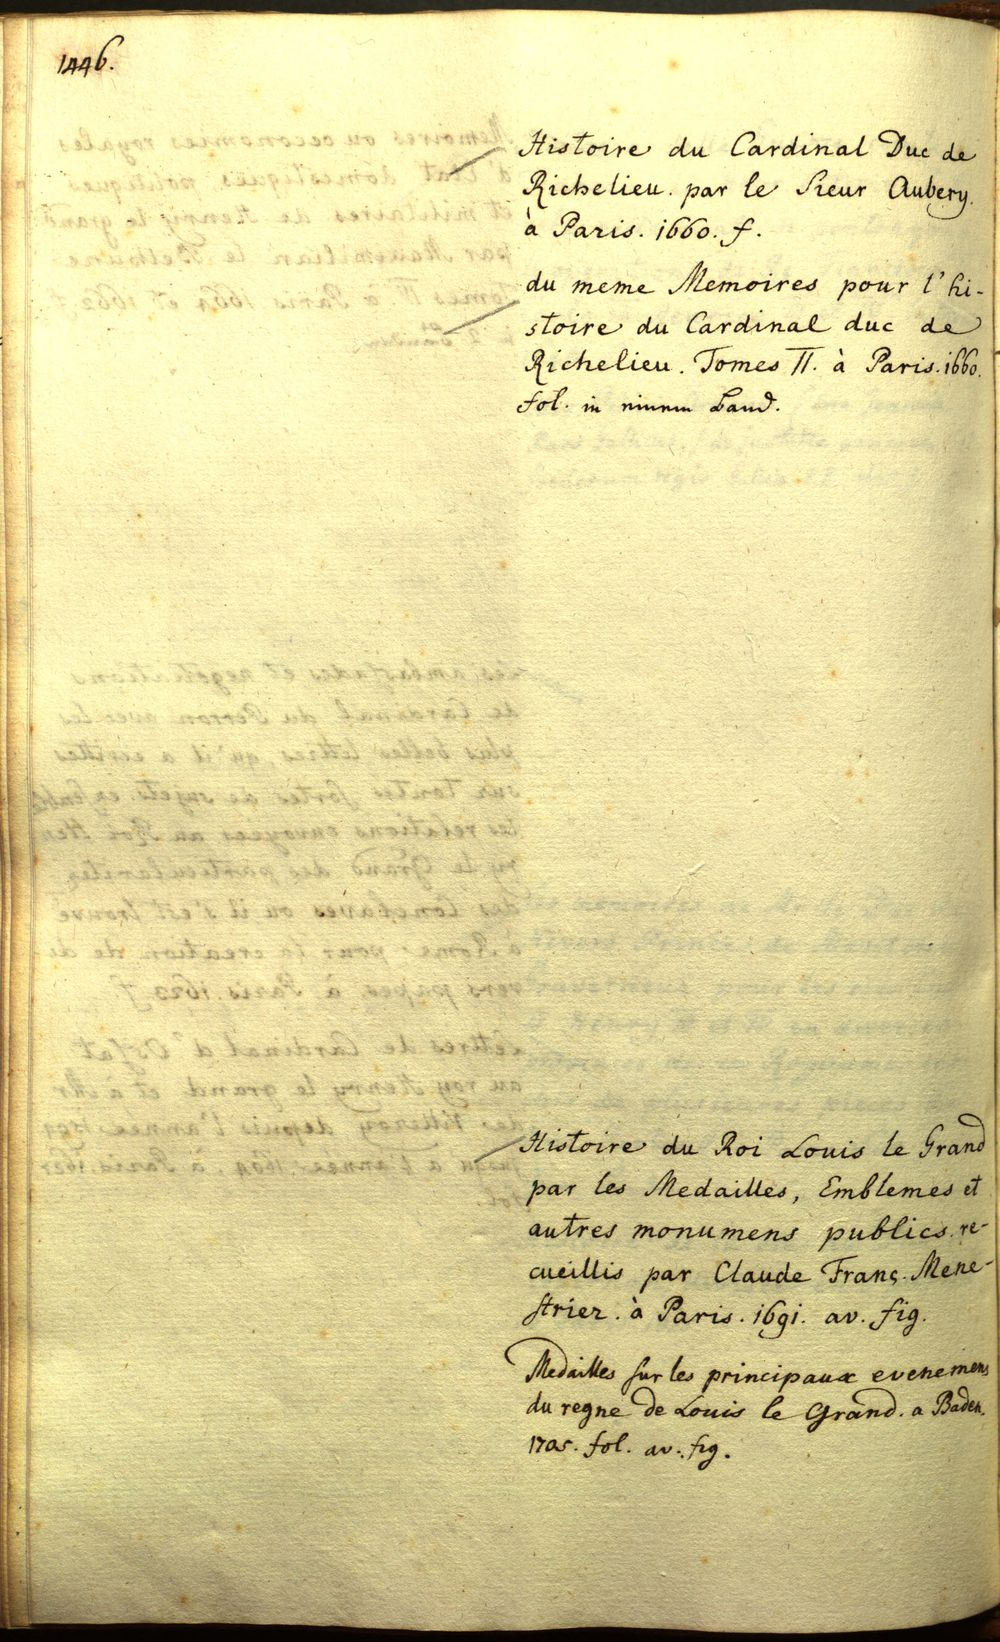 1446.
Histoire du Cardinal Duc de
Richelieu. par le Sieur Aubery.
à Paris. 1660. f.
du meme Memoires pour l'hi-
stoire du Cardinal duc de
Richelieu. Tomes II. à Paris. 1660.
fol. in einem Band.
Histoire du Roi Louis le Grand
par les Medailles, Emblemes et
autres monumens publics. re-
cueillis par Claude Franç. Mene-
strier. à Paris. 1691. av. fig.
Medailles sur les principaux evenemens
du regne de Louis le Grand. a Baden.
1705. fol. av. fig.